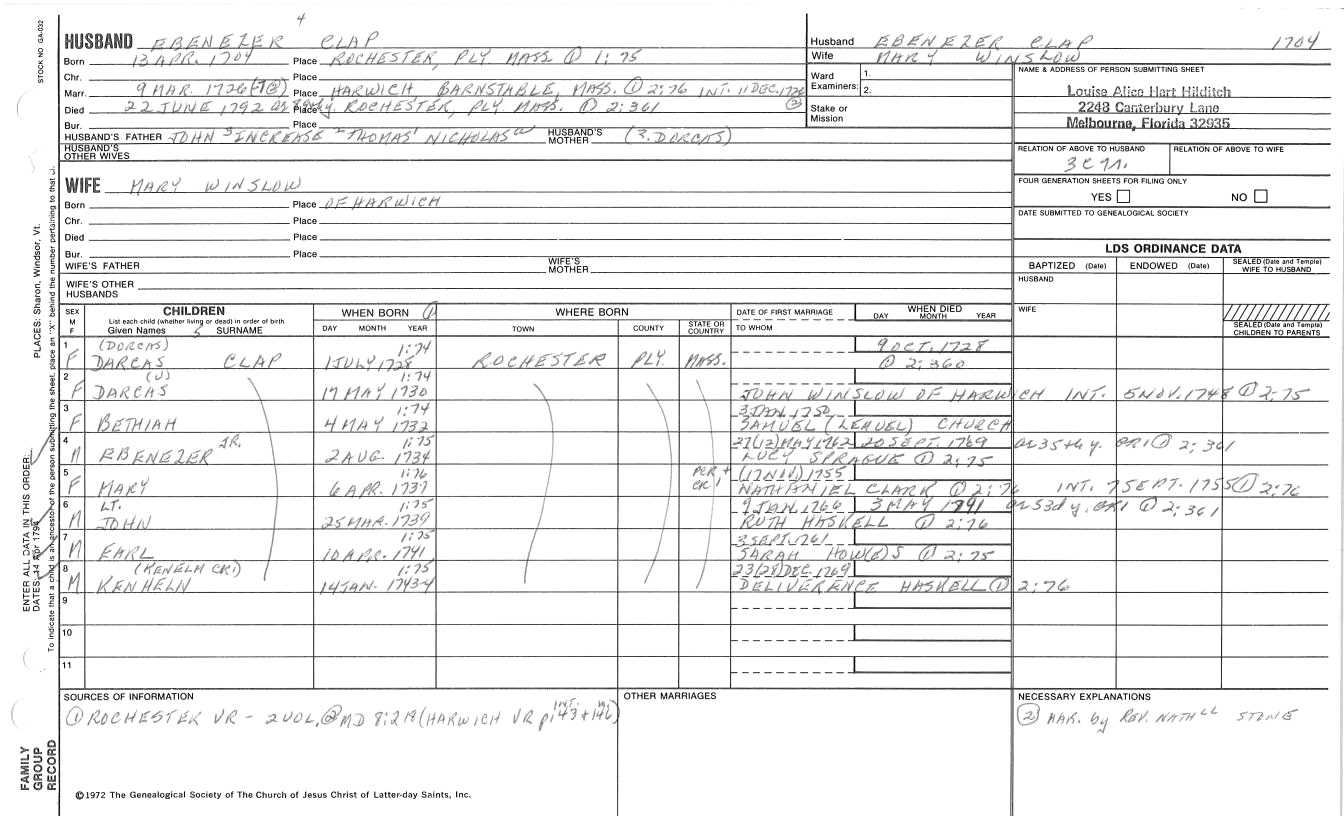 STOCK NO. GA-032
4
HUSBAND EBENEZER CLAP
Born 13 APR. 1704 Place ROCHESTER, PLY. MASS. ① 1:75
Chr. Place
Marr. 9 MAR. 1726 Place HARWICH, BARNSTABLE, MASS. ① 2:76 INT. 11 DEC. 1726 ②
Died 22 JUNE 1792 Place ROCHESTER, PLY. MASS. ① 2:361
Bur. Place
HUSBAND'S FATHER JOHN³ INCREASE² THOMAS¹ NICHOLAS HUSBAND'S MOTHER (3. DORCAS)
HUSBAND'S OTHER WIVES
WIFE MARY WINSLOW
Born Place OF HARWICH
Chr. Place
Died Place
Bur. Place
WIFE'S FATHER WIFE'S MOTHER
WIFE'S OTHER HUSBANDS
Husband EBENEZER CLAP 1704
Wife MARY WINSLOW
Ward Examiners: 1. 2.
Stake or Mission
NAME & ADDRESS OF PERSON SUBMITTING SHEET
Louise Alice Hart Hilditch
2248 Canterbury Lane
Melbourne, Florida 32935
RELATION OF ABOVE TO HUSBAND RELATION OF ABOVE TO WIFE
FOUR GENERATION SHEETS FOR FILING ONLY
YES NO
DATE SUBMITTED TO GENEALOGICAL SOCIETY
LDS ORDINANCE DATA
BAPTIZED (Date) ENDOWED (Date) SEALED (Date and Temple) WIFE TO HUSBAND
HUSBAND
WIFE
SEALED (Date and Temple) CHILDREN TO PARENTS
SEX M F
CHILDREN
List each child (whether living or dead) in order of birth
Given Names 5 SURNAME
WHEN BORN ①
DAY MONTH YEAR
WHERE BORN
TOWN COUNTY STATE OR COUNTRY
DATE OF FIRST MARRIAGE
TO WHOM
WHEN DIED
DAY MONTH YEAR
1 (DORCAS) 1:74 9 OCT. 1728
F DARCAS CLAP 1 JULY 1728 ROCHESTER PLY. MASS. ① 2:360
2 1:74
F DARCAS 17 MAY 1730 JOHN WINSLOW OF HARWICH INT. 5 NOV. 1748 ① 2:75
3 1:74 3 JAN. 1750
F BETHIAH 4 MAY 1732 SAMUEL (LEMUEL) CHURCH
4 JR. 1:75 27(12) MAY 1762 20 SEPT. 1769 or 35th y. GR1 ① 2:361
M EBENEZER 2 AUG. 1734 LUCY SPRAGUE ① 2:75
5 1:76 1755
F MARY 6 APR. 1737 NATHANIEL CLARK ① 2:76 INT. 7 SEPT. 1755 ① 2:76
6 LT. 1:75 9 JAN. 1766 3 MAY 1791 or 53d y. GR1 ① 2:361
M JOHN 25 MAR. 1739 RUTH HASKELL ① 2:76
7 1:75 3 SEPT. 1761
M EARL 10 APR. 1741 SARAH HOW(E)S ① 2:75
8 (KENELM CR1) 1:75 23(28) DEC. 1769
M KENHELN 14 JAN. 1743-4 DELIVERENCE HASKELL ① 2:76
9
10
11
SOURCES OF INFORMATION
① ROCHESTER VR - 2 VOL, ② MD 8:218 (HARWICH VR p. INT. 143 + 146)
OTHER MARRIAGES
NECESSARY EXPLANATIONS
② MAR. by REV. NATHLL STONE
©1972 The Genealogical Society of The Church of Jesus Christ of Latter-day Saints, Inc.
PLACES: Sharon, Windsor, Vt.
ENTER ALL DATA IN THIS ORDER:
DATES: 14 Apr 1794
To indicate that a child is an ancestor of the person submitting the sheet, place an "X" behind the number pertaining to that child.
FAMILY GROUP RECORD